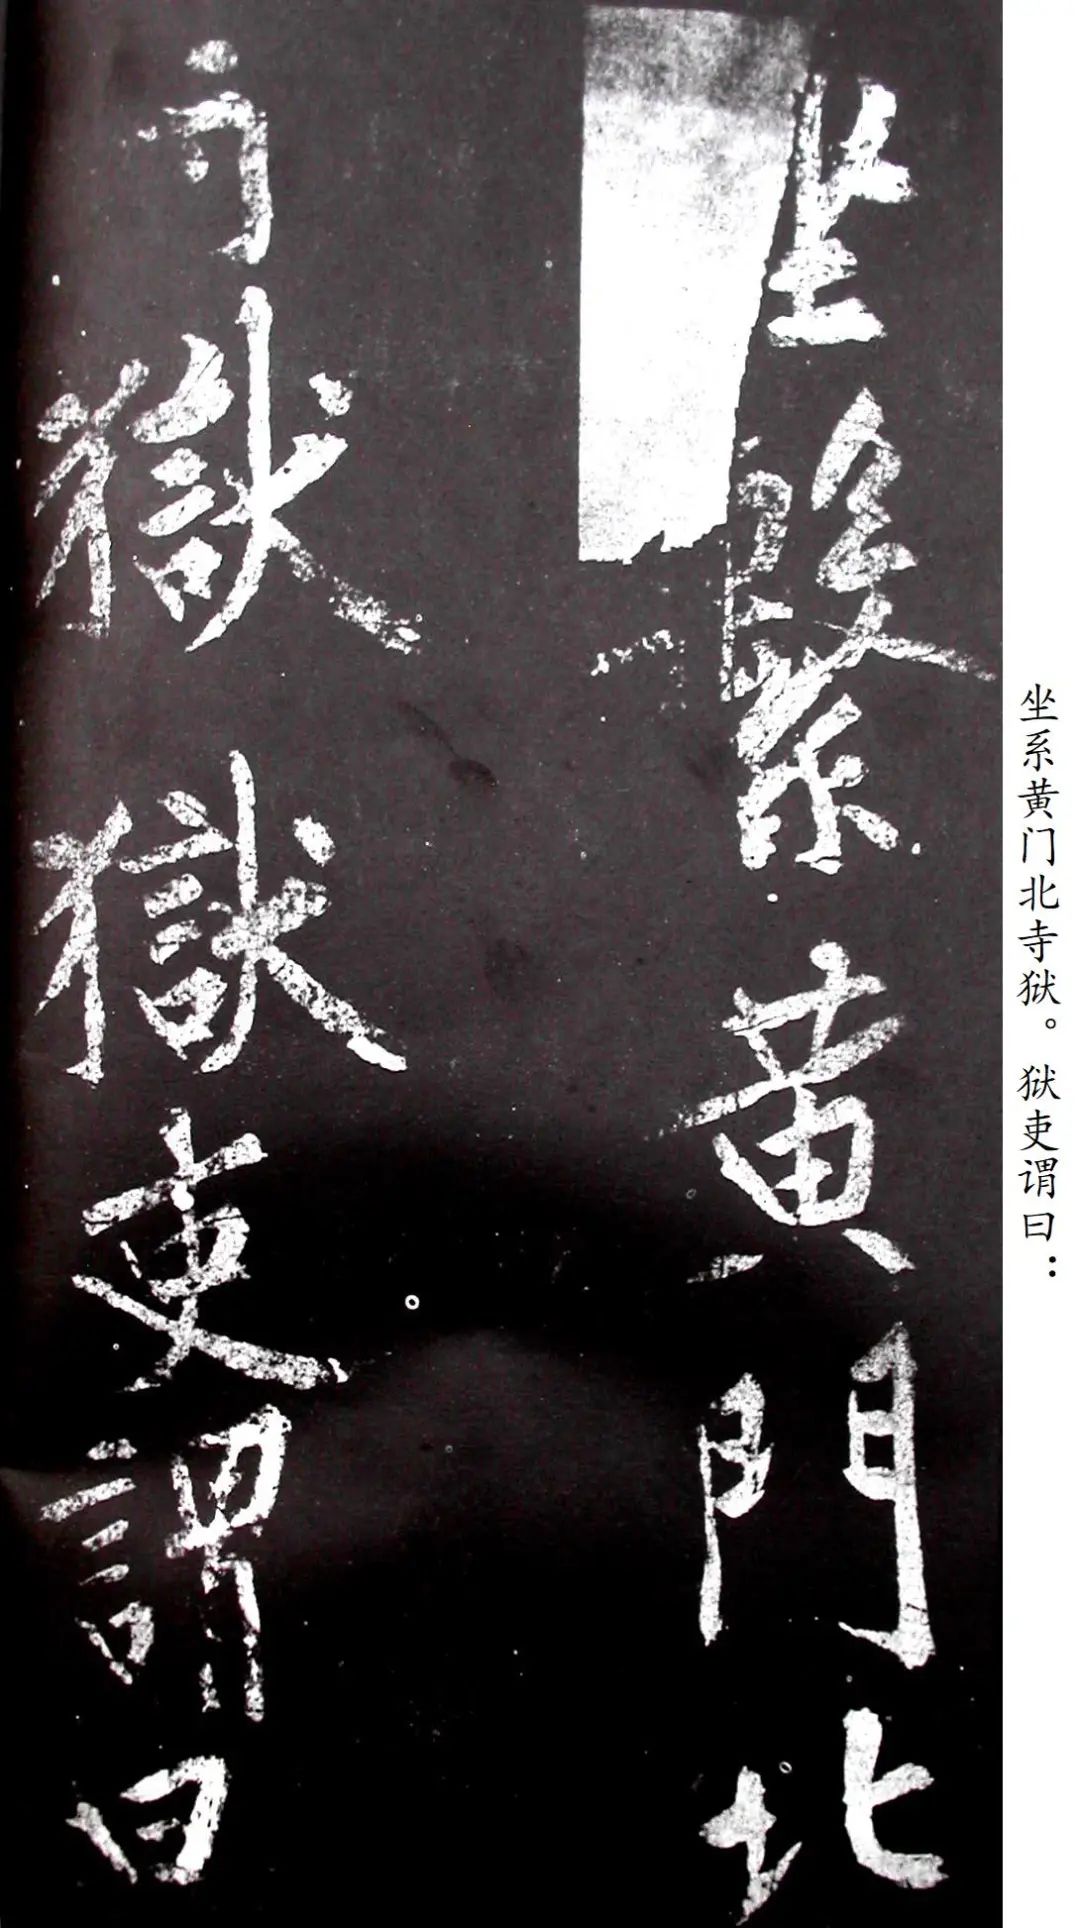 坐系黄门北寺狱。狱吏谓曰：
坐繫黄門北
寺獄獄吏謂曰